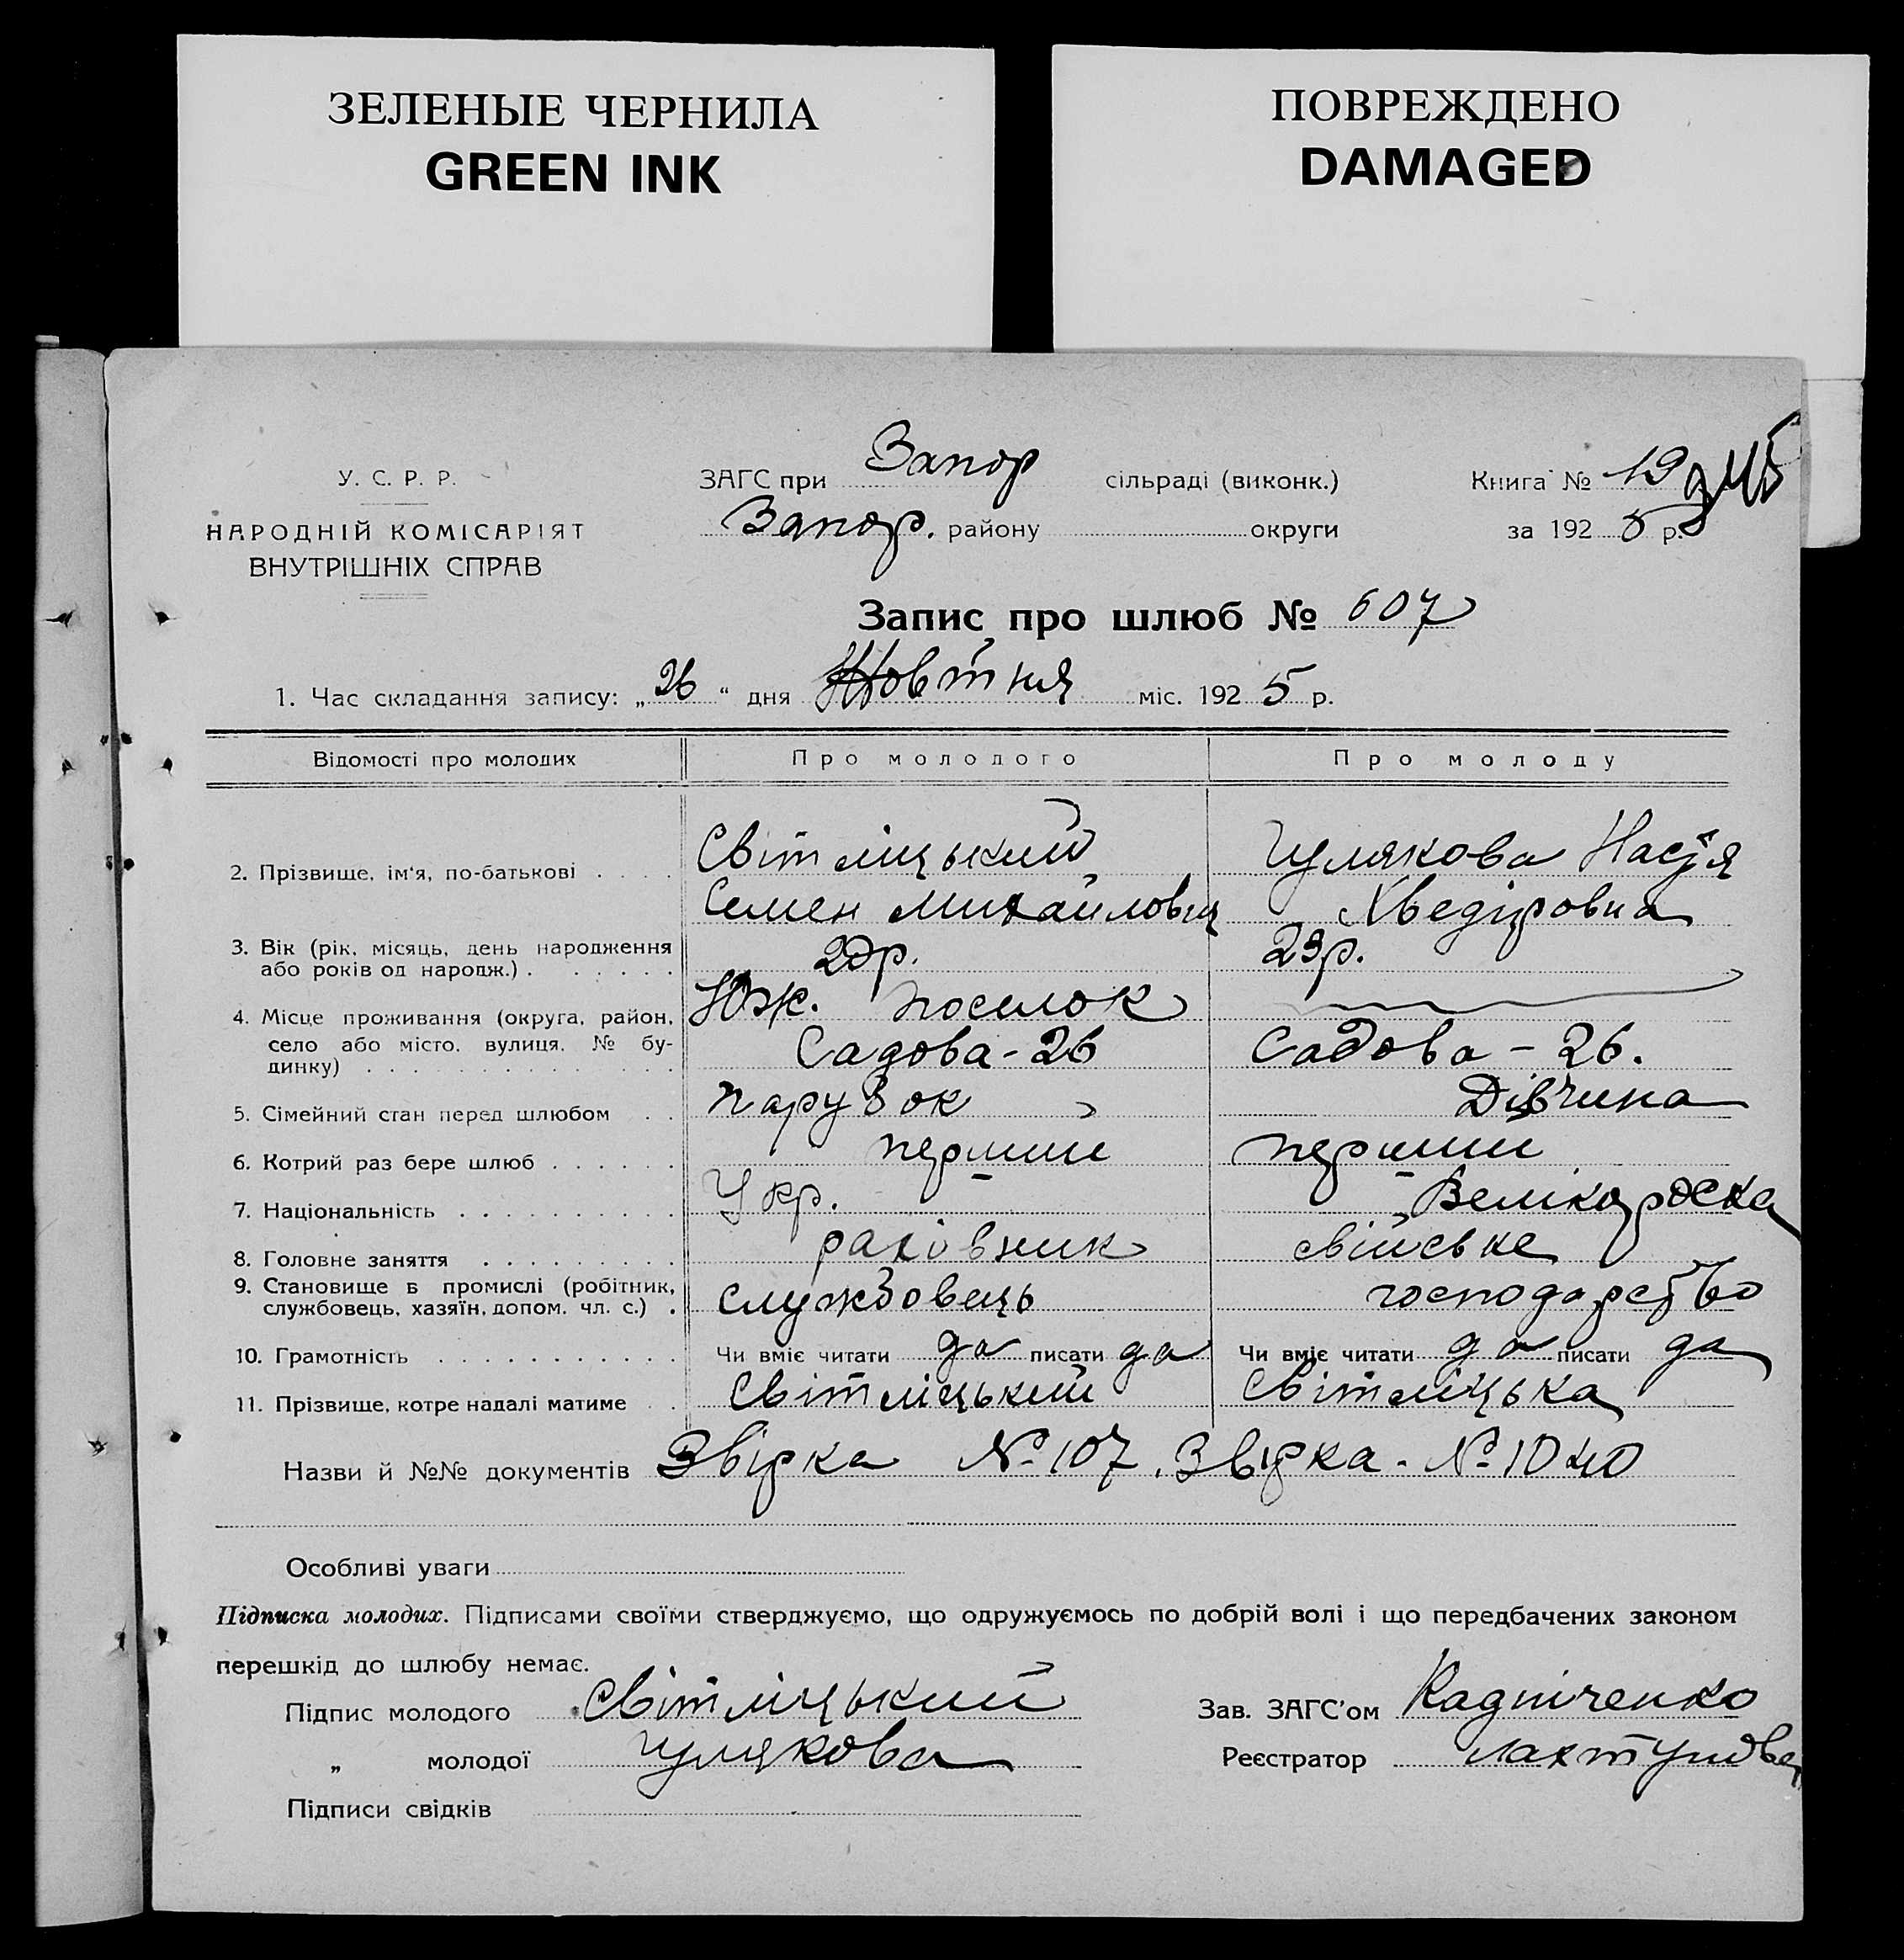 ЗЕЛЕНЫЕ ЧЕРНИЛА
GREEN INK
ПОВРЕЖДЕНО
DAMAGED
У. С. Р. Р.
НАРОДНІЙ КОМІСАРІЯТ
ВНУТРІШНІХ СПРАВ
ЗАГС при Запор сільраді (виконк.)
Запор. району округи
Книга № 19
за 1925 р.
Запис про шлюб № 607
1. Час складання запису: „26“ дня Жовтня міс. 1925 р.
Відомості про молодих Про молодого Про молоду
2. Прізвище, ім'я, по-батькові Світліцький Гулякова Настя
Семен Михайлович Хведіровна
3. Вік (рік, місяць, день народження
або років од народж.) р. 23р.
4. Місце проживання (округа, район, Юж. поселок
село або місто, вулиця, № бу- Садова-26 Садова-26.
динку)
5. Сімейний стан перед шлюбом парубок Дівчина
6. Котрий раз бере шлюб перший перший
7. Національність Укр. Велікороска
8. Головне заняття раховник свійське
9. Становище в промислі (робітник,
службовець, хазяїн, допом. чл. с.) службовець господарство
10. Грамотність Чи вміє читати да писати да Чи вміє читати да писати да
11. Прізвище, котре надалі матиме Світліцький Світліцька
Назви й №№ документів Звірка № 107. Звірка - № 1040
Особливі уваги
Підписка молодих. Підписами своїми стверджуємо, що одружуємось по добрій волі і що передбачених законом
перешкід до шлюбу немає.
Підпис молодого Світліцький Зав. ЗАГС'ом
„ молодої Гулякова Реєстратор
Підписи свідків